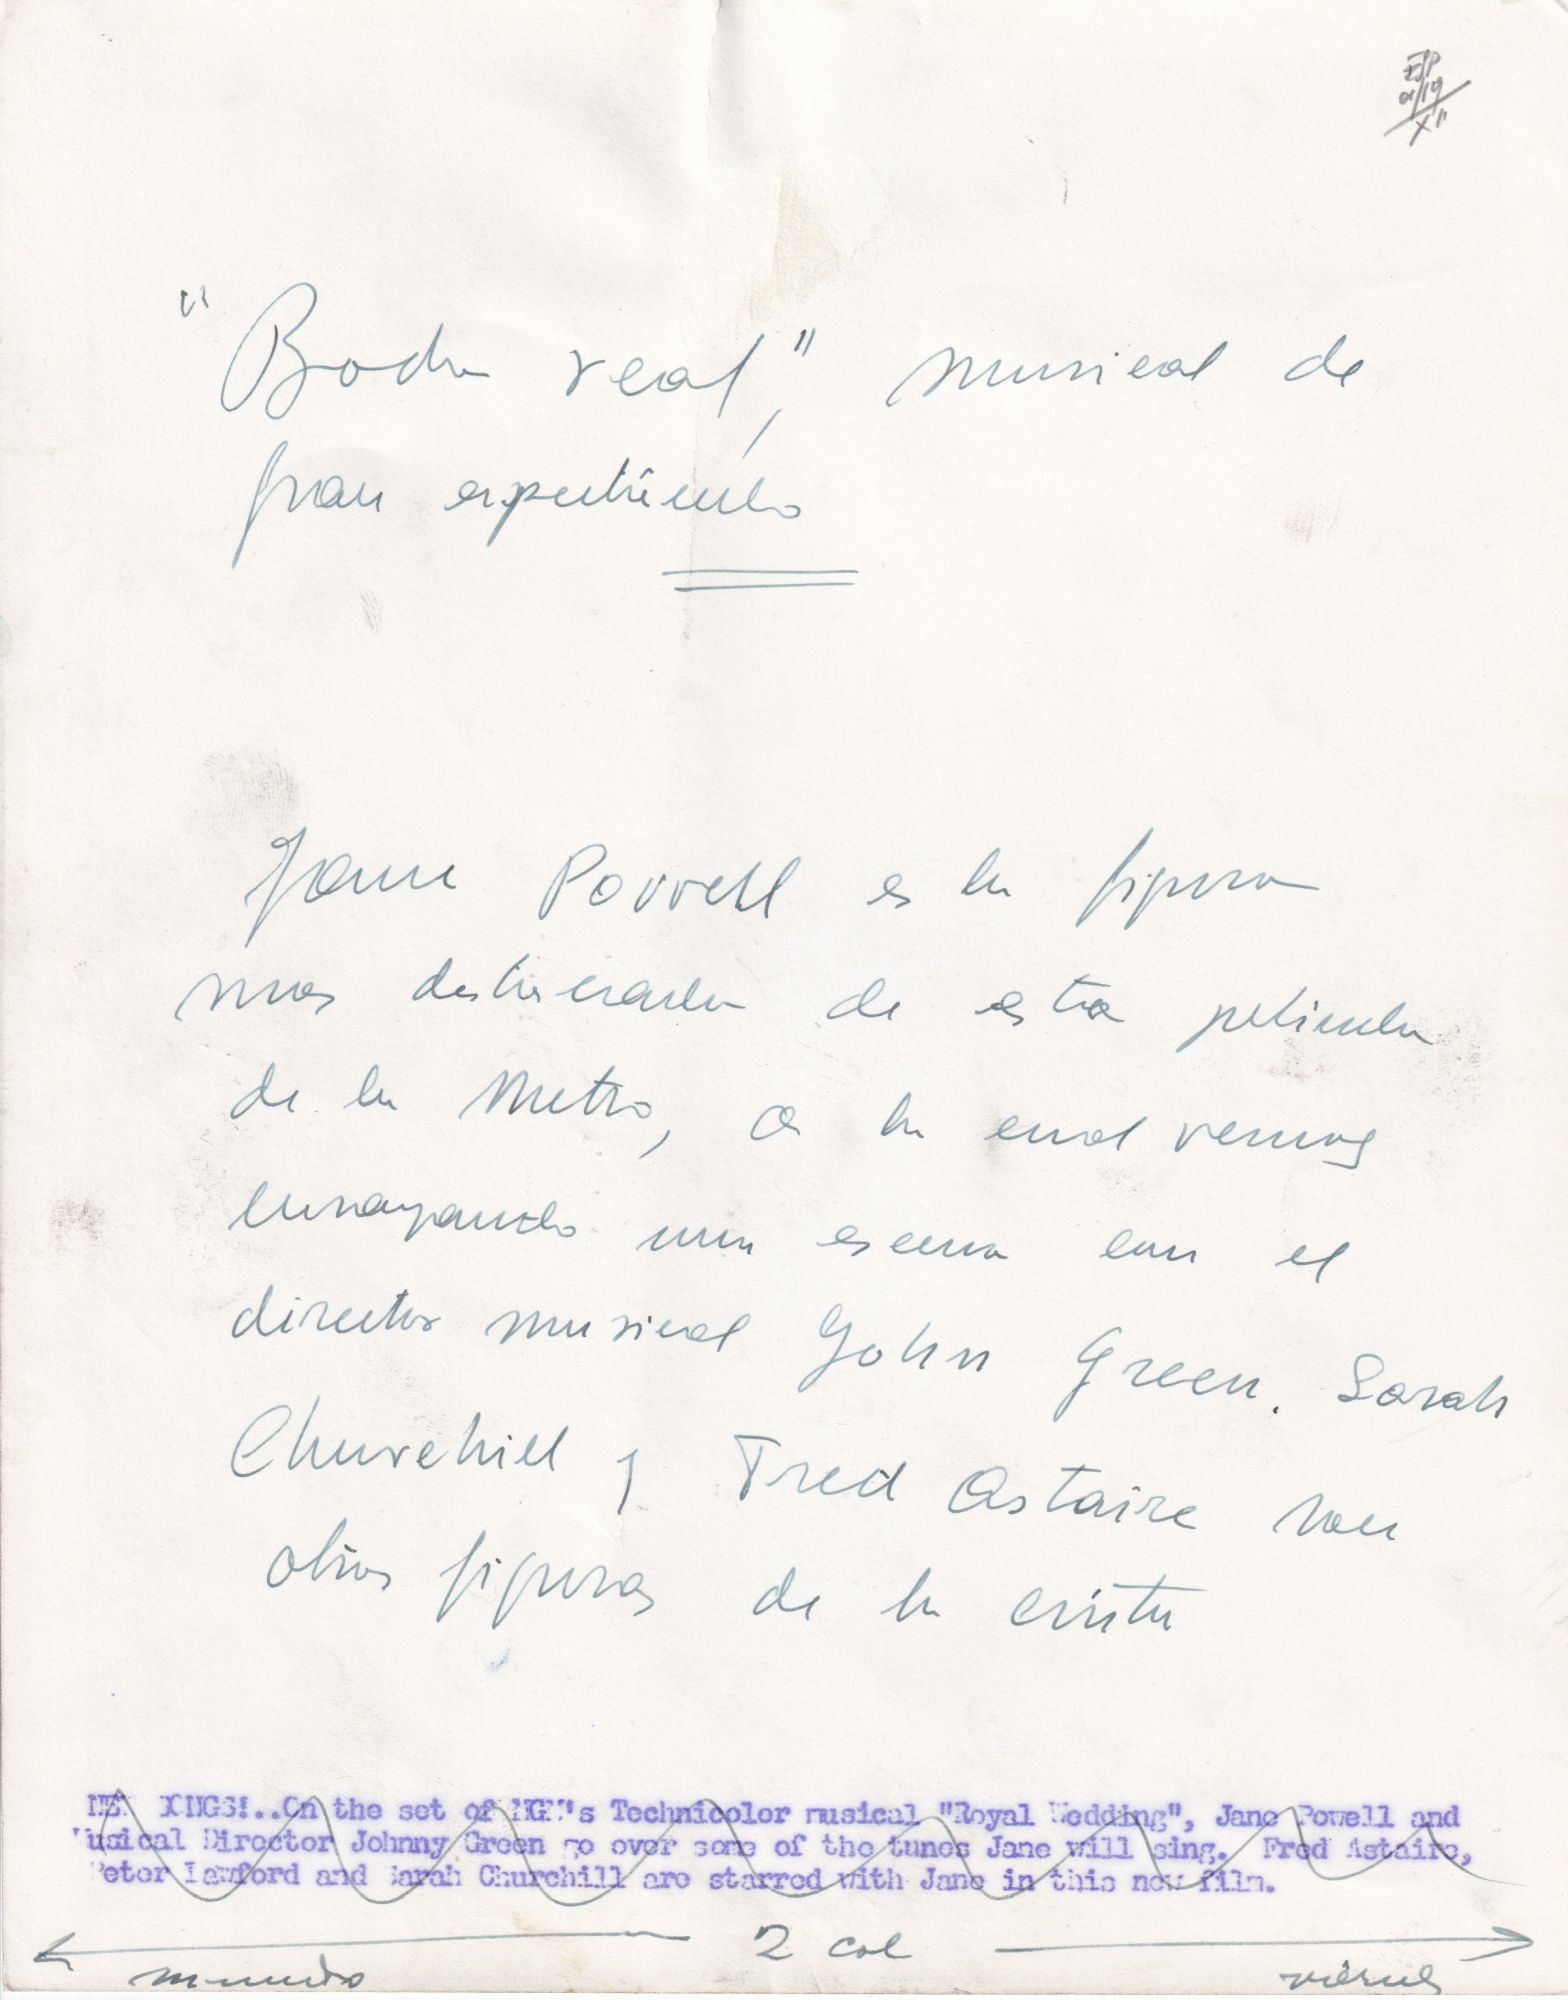 "Boda real," musical de
gran espectáculo
Jane Powell es la figura
mas destacada de esta pelicula
de la Metro, a la cual vemos
ensayando una escena con el
director musical John Green. Sarah
Churchill y Fred Astaire son
otras figuras de la cinta
NEW SONGS!..On the set of MGM's Technicolor musical "Royal Wedding", Jane Powell and
Musical Director Johnny Green go over some of the tunes Jane will sing. Fred Astaire,
Peter Lawford and Sarah Churchill are starred with Jane in this new film.
2 col
mundo viernes